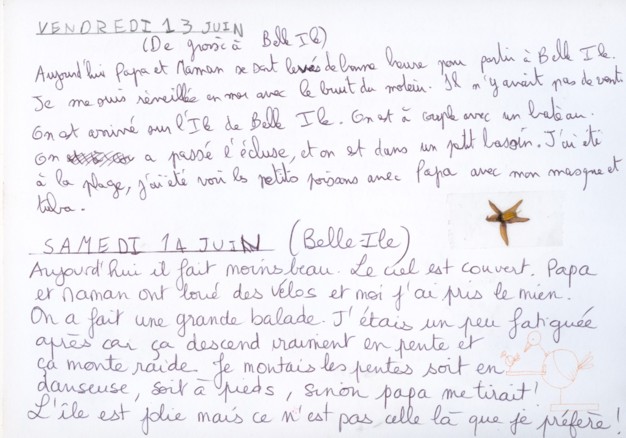 VENDREDI 13 JUIN
(De groix à Belle Ile)
Aujourd'hui Papa et Maman se sont levés de bonne heure pour partir à Belle Ile.
Je me suis réveillée en mer avec le bruit du moteur. Il n'y avait pas de vent
On est arrivé sur l'Ile de Belle Ile. On est à couple avec un bateau.
On a passé l'écluse, et on est dans un petit bassin. J'ai été
à la plage, j'ai été voir les petits poissons avec Papa avec mon masque et
tuba.
SAMEDI 14 JUIN (Belle Ile)
Aujourd'hui il fait moins beau. Le ciel est couvert. Papa
et Maman ont loué des vélos et moi j'ai pris le mien.
On a fait une grande balade. J'étais un peu fatiguée
après car ça descend vraiment en pente et
ça monte raide. Je montais les pentes soit en
danseuse, soit à pieds, sinon papa me tirait!
L'île est jolie mais ce n'est pas celle là que je préfère!